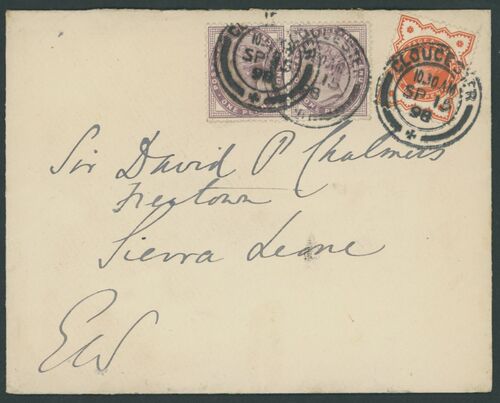 GLOUCESTER
10.30 AM
SP 15
98
GLOUCESTER
SP 15
98
GLOUCESTER
10.30 AM
SP 15
98
ONE PE
Sir David P Chalmers
Freetown
Sierra Leone